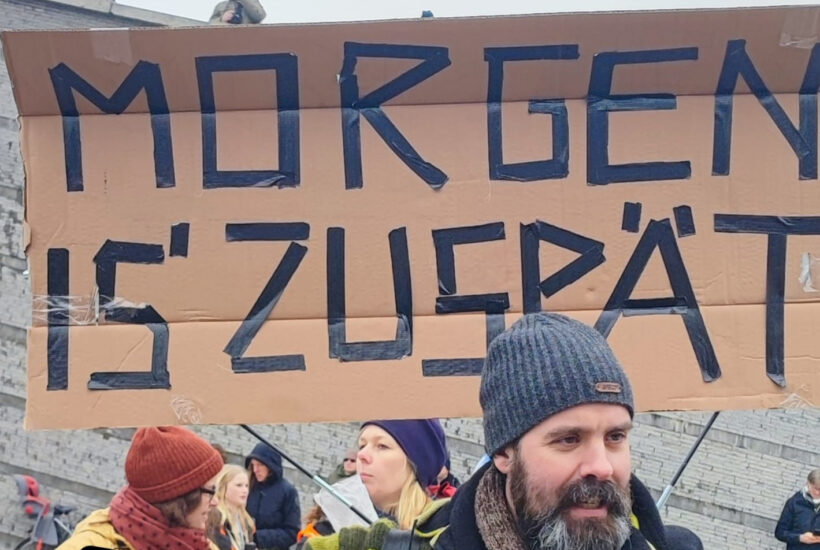 MORGEN
IS' ZU SPÄT